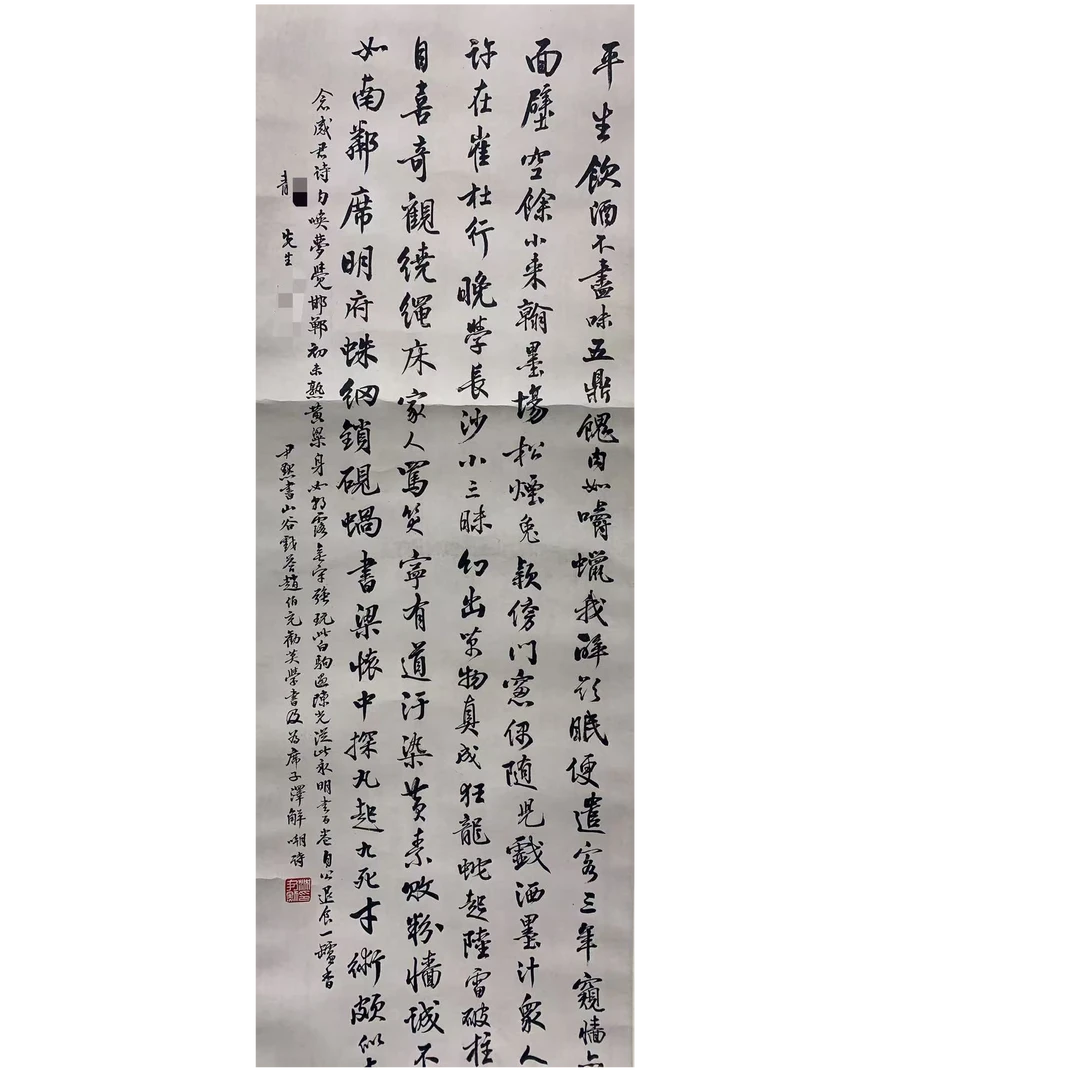 平生飲酒不盡味五鼎餽肉如嚼蠟我醉欲眠便遣客三年窺墻
面壁空餘小来翰墨場松煙兔穎傍门窓偶随児戲洒墨汁衆人
许在崔杜行晚學長沙小三昧幻出萬物真成狂龍蛇起陸雷破柱
自喜奇觀繞繩床家人罵笑寧有道汙染黄素败粉墻诚不
如南鄰席明府蛛網鎖硯蝸書梁懷中探丸起九死才術颇似
仓感君诗句唤夢覺邯鄲初未熟黄粱身如朝露無牢強玩此白駒過隙光従此永明書百卷自公退食一罏香
青 先生
尹默書山谷戲答趙伯充勸莫學書及为席子澤解嘲诗